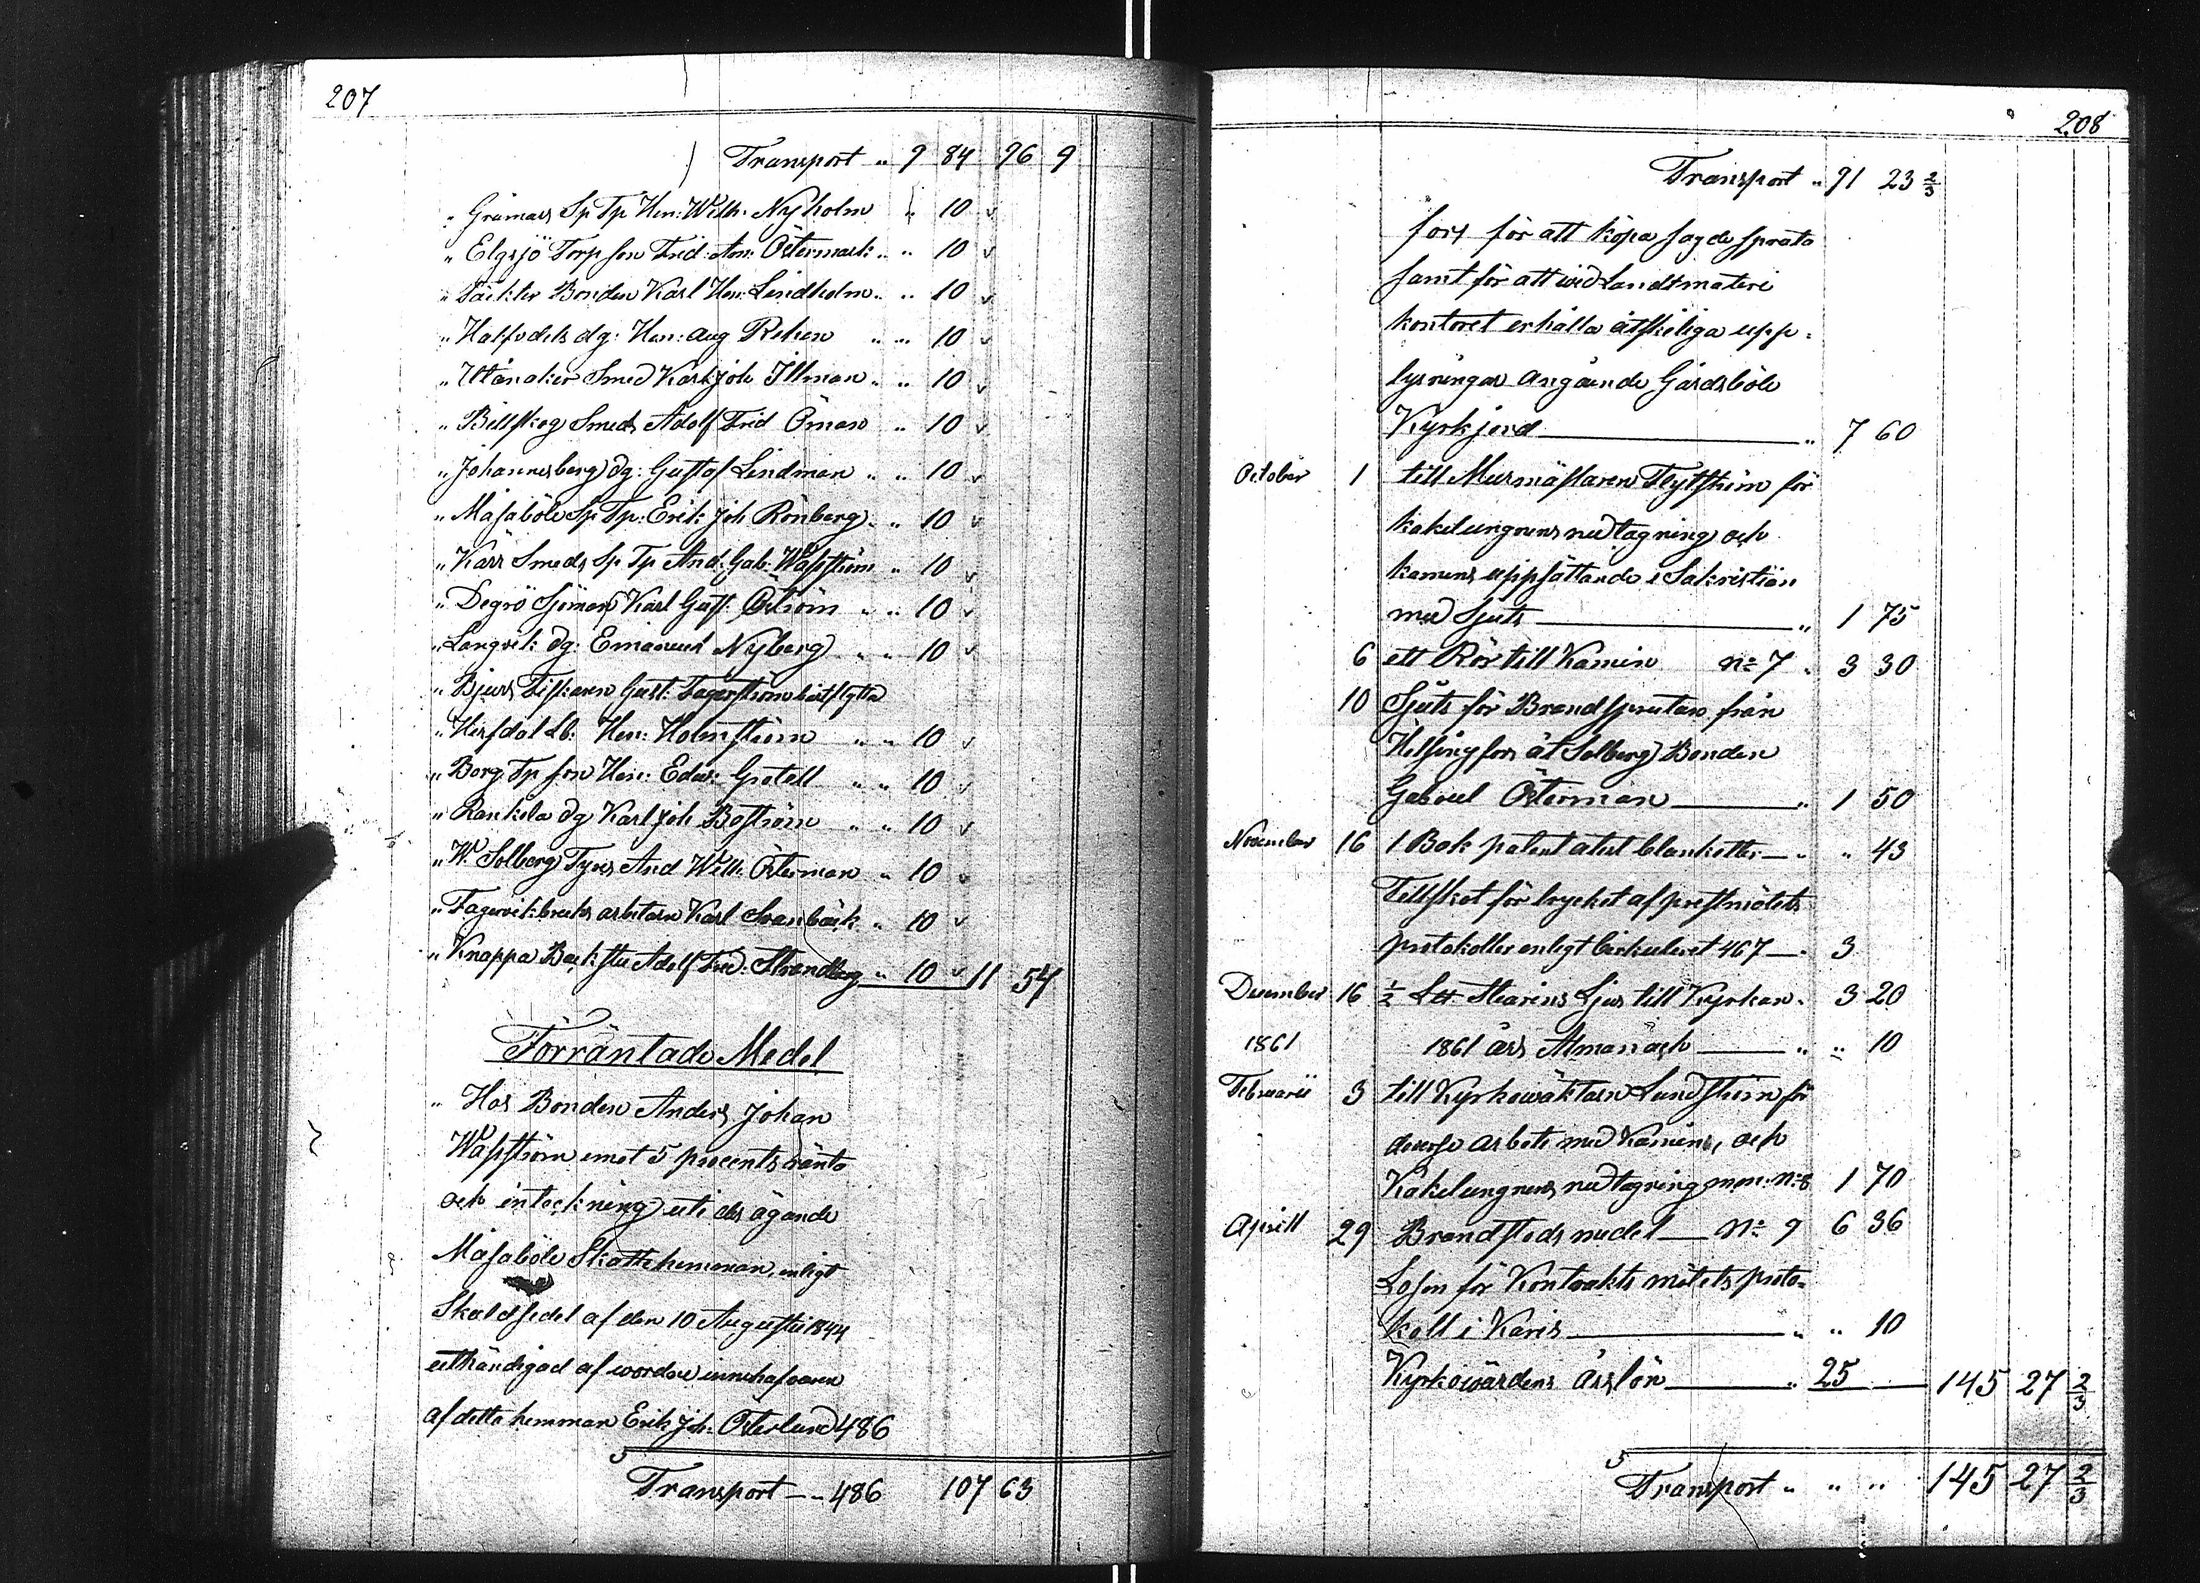 207
Transport „ 9 84 96 9
„ Sp Tp Hen: Wilh: Nyholm „ 10 v
„ Elgsjö Torp son Frid: Östermark „ „ 10 v
„ Bonden Karl Hen: Lindholm „ „ 10 v
„ Halfvdels dg: Hen: Aug Rehen „ „ 10 v
„ Utånaker Smed Karl Joh Illman „ „ 10 v
„ Billskog Smeds Adolf Frid Öman „ 10 v
„ Johannesberg dg: Gustaf Lindman „ „ 10 v
„ Måsaböle Sp Tp: Erik Joh Rönberg „ „ 10 v
„ Karr Smeds Sp Tp And: Gab: Wasström „ 10 v
„ Degrö Sjöman Karl Gust: Öström „ „ 10 v
„ Langvik dg: Emanuel Nyberg „ „ 10 v
„ Bjurs Fiskaren Gust: Fagerström bortflytta
„ Hirsdal db: Hen: Holmström „ „ 10 v
„ Borg Tp son Hen: Edw: Grotell „ „ 10 v
„ Rankila dg Karl Joh Boström „ „ 10 v
„ W. Solberg And Wilh: Österman „ 10 v
„ Fagervik bruks arbetaren Karl Svanbäck „ 10 v
„ Knappa Backstu Adolf Fred: Strandberg „ 10 v 11 54
Förräntade Medel
„ Hos Bonden Anders Johan
Wasström emot 5 procents ränta
och inteckning uti des ägande
Måsaböle Skattehemman, enligt
Skuldsedel af den 10 Augusti 1844
uthändigad af innehafvaren
af detta hemman Erik Joh: Österlund 486
Transport „ 486 107 63
208
Transport „ 91 23 2/3
fors för att köpa sagde spruta
samt för att wid Landtmäteri
kontoret erhålla åtskiliga upp-
lysningar angående Gårdsböle
Kyrkjord „ 7 60
October 1 till Murmästaren Flytström för
kakelungnens nedtagning och
kamins uppsättande i Sakristian
med Sjuts „ 1 75
6 ett Rör till Kamin No 7 „ 3 30
10 Sjuts för Brandsprutan från
Helsingfors åt Solberg Bonden
Gabriel Österman „ 1 50
November 16 1 Bok blanketter „ „ 43
Tillskot för trycket af prestmötets
protokoller enligt Cirkuleret 467 „ 3
December 16 1/2 L℔ Stearins Ljus till Kyrkan „ 3 20
1861 1861 års Almanach „ „ 10
Februarii 3 till Kyrkowäktarn Lundström för
diverse arbete med Kamins, och
Kakelungnens nedtagning No 8 1 70
Aprill 29 Brandstods medel No 9 6 36
Lösen för Kontrakts mötets proto-
koll i Karis „ „ 10
Kyrkowärdens årslön „ 25 145 27 2/3
Transport „ „ „ 145 27 2/3